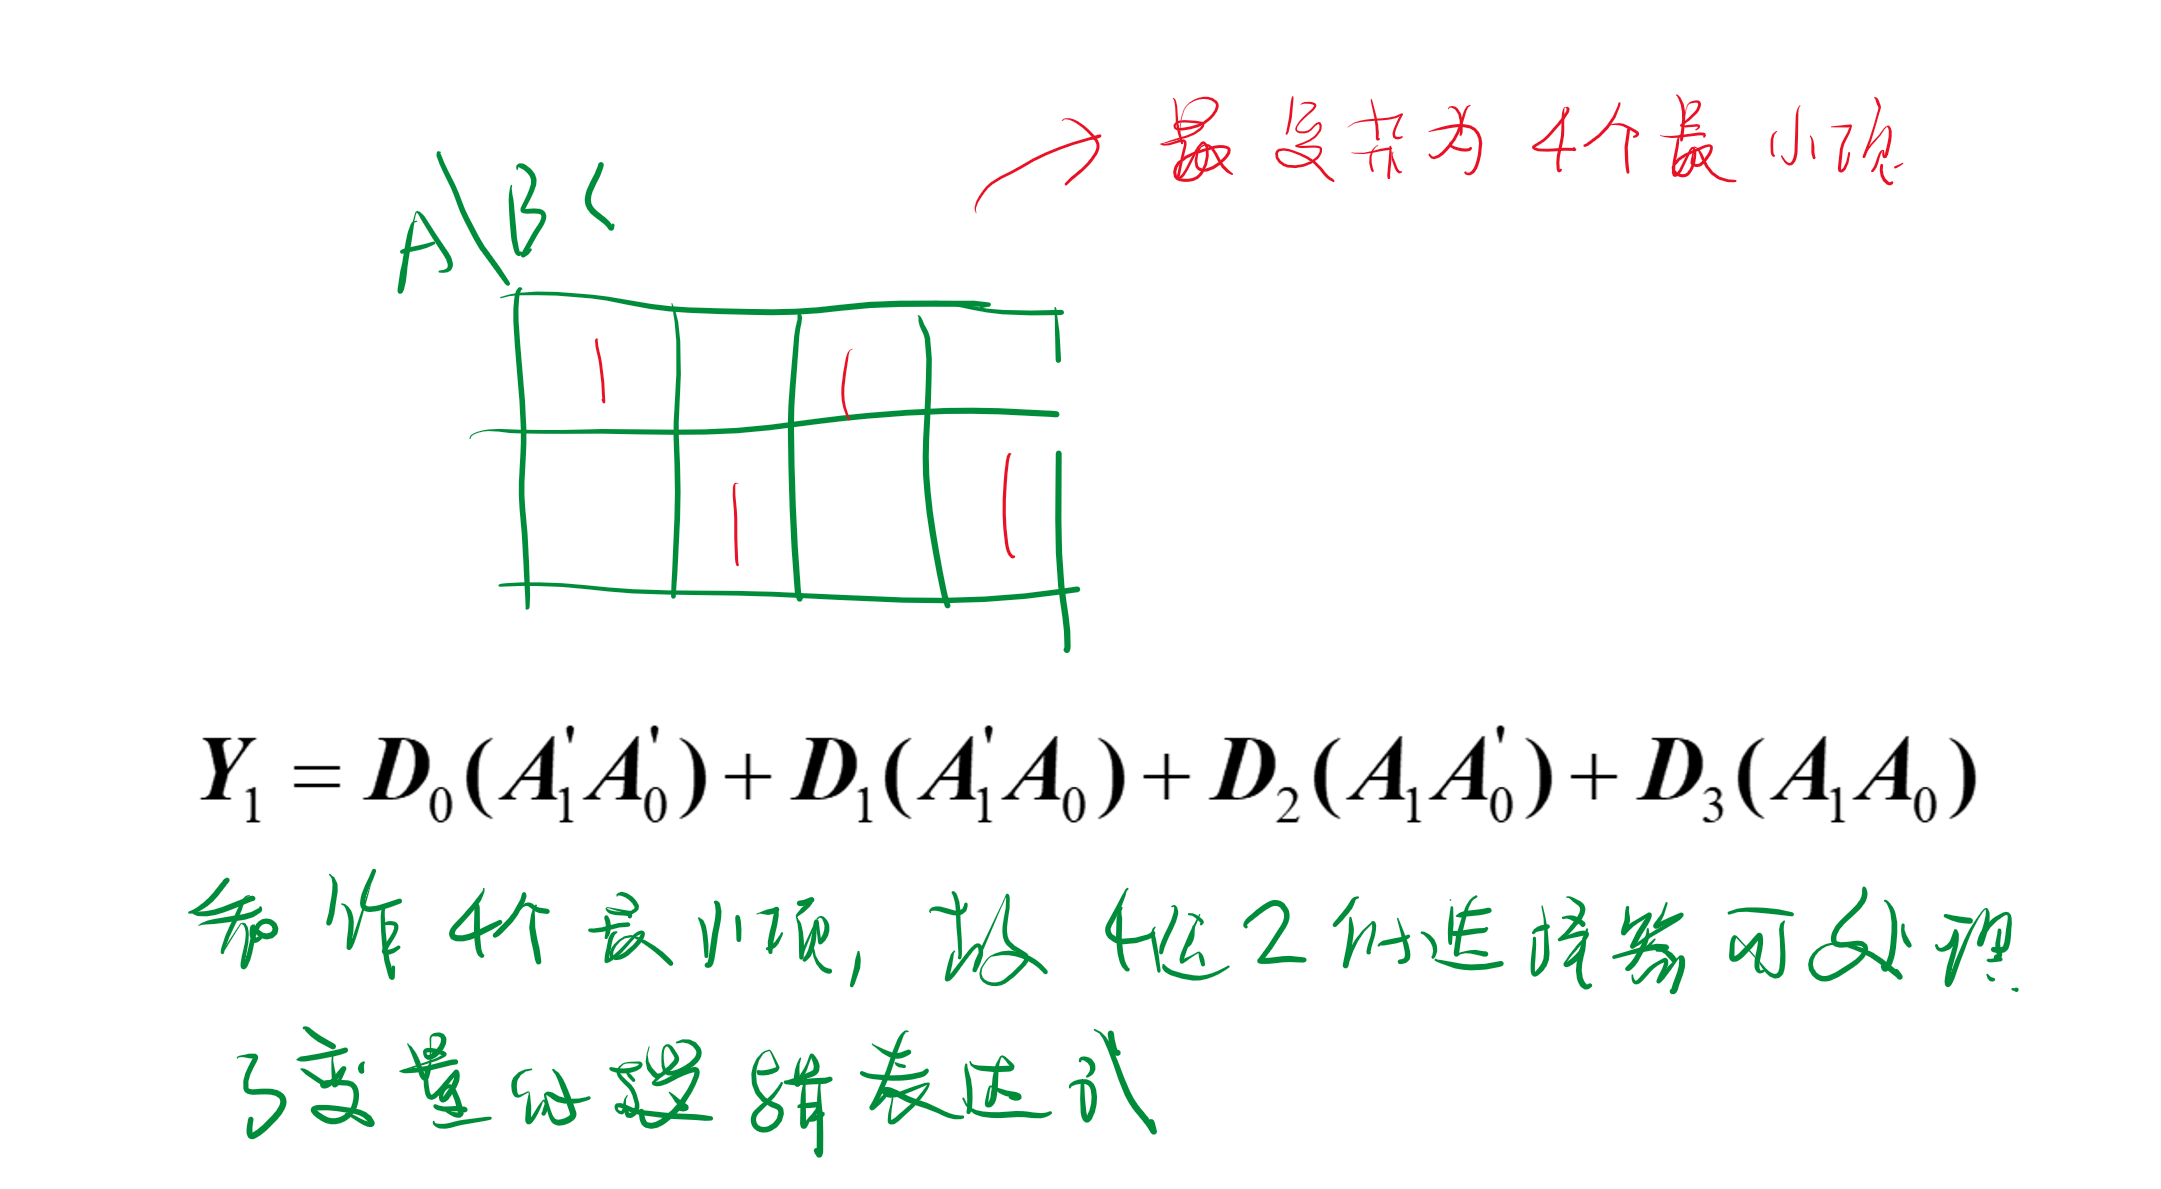 最复杂为4个最小项
A\BC
1 1
1 1
Y₁ = D₀(A₁'A₀') + D₁(A₁'A₀) + D₂(A₁A₀') + D₃(A₁A₀)
作4个最小项, 故4选2的选择器可处理
3变量的逻辑表达式